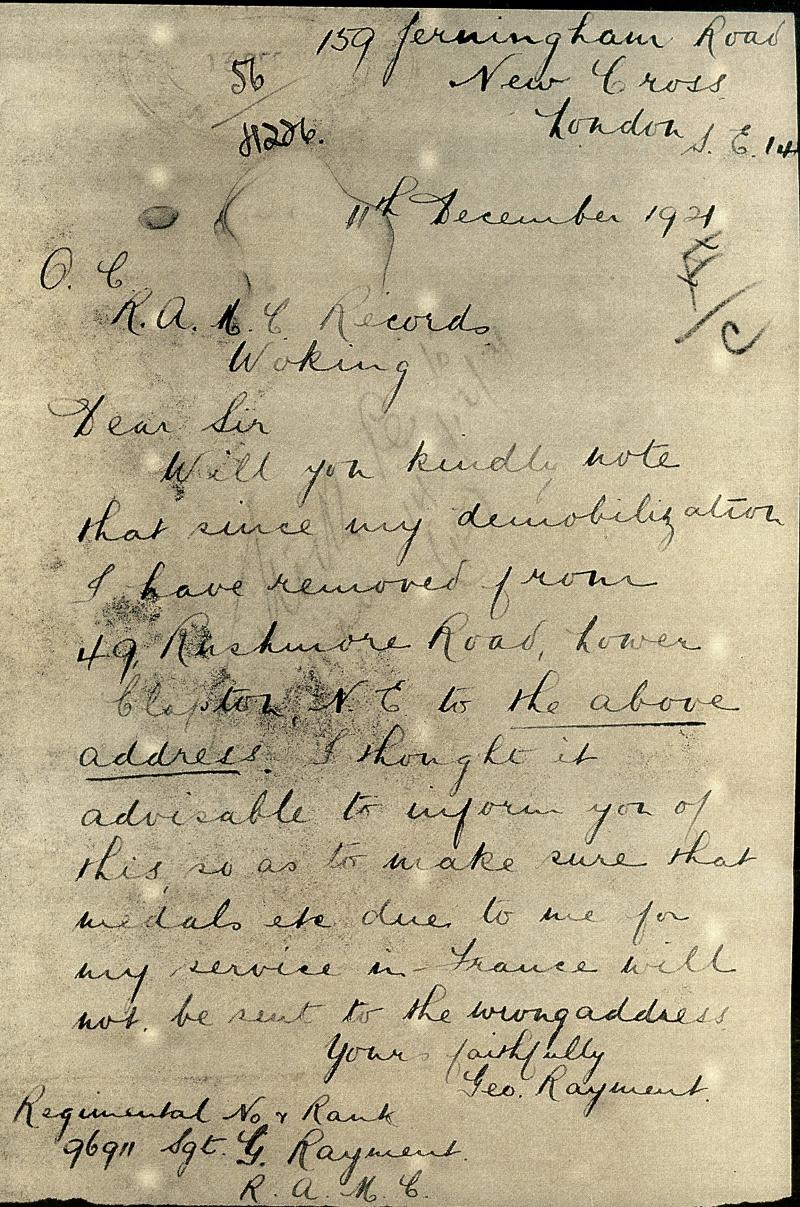 159 Jerningham Road
New Cross
London S.E. 14
56
H226.
11th December 1921
O. C
R.A.M.C Records
Woking
Dear Sir
Will you kindly note
that since my demobilization
I have removed from
49, Rushmore Road, Lower
Clapton, N.E to the above
address. I thought it
advisable to inform you of
this, so as to make sure that
medals etc due to me for
my service in France will
not be sent to the wrong address
Yours faithfully
Geo. Rayment.
Regimental No & Rank
96911 Sgt. G. Rayment.
R. A. M. C.